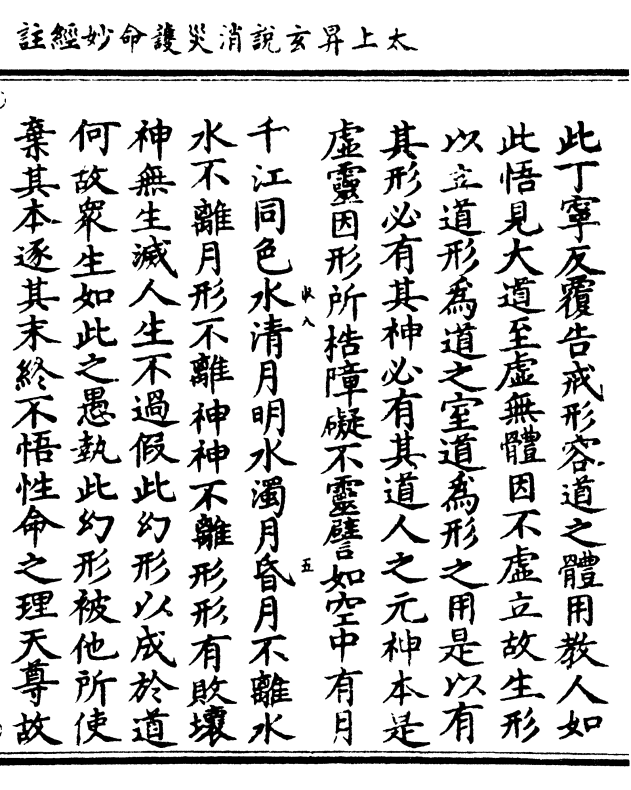 太上昇玄說消災護命妙經註
此丁寧反覆告戒形容道之體用教人如
此悟見大道至虛無體因不虛立故生形
以立道形為道之室道為形之用是以有
其形必有其神必有其道人之元神本是
虛靈因形所梏障礙不靈譬如空中有月
收八 五
千江同色水清月明水濁月昏月不離水
水不離月形不離神神不離形形有敗壞
神無生滅人生不過假此幻形以成於道
何故眾生如此之愚執此幻形被他所使
棄其本逐其末終不悟性命之理天尊故